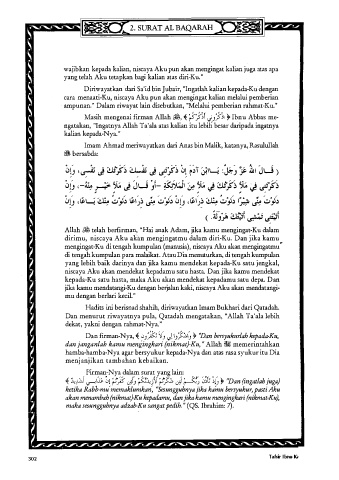 2. SURAT AL BAQARAH
wajibkan kepada kalian, niscaya Aku pun akan mengingat kalian juga atas apa
yang telah Aku tetapkan bagi kalian atas diri-Ku."
Diriwayatkan dari Sa'id bin Jubair, "Ingatlah kalian kepada-Ku dengan
cara mentaati-Ku, niscaya Aku pun akan mengingat kalian melalui pemberian
ampunan." Dalam riwayat lain disebutkan, "Melalui pemberian rahmat-Ku."
Masih mengenai firman Allah ﷻ, ﴿ فَاذْكُرُونِي أَذْكُرْكُمْ ﴾ Ibnu Abbas me-
ngatakan, "Ingatnya Allah Ta'ala atas kalian itu lebih besar daripada ingatnya
kalian kepada-Nya."
Imam Ahmad meriwayatkan dari Anas bin Malik, katanya, Rasulullah
ﷺ bersabda:
( قَالَ اللهُ عَزَّ وَجَلَّ: يَـاابْنَ آدَمَ إِنْ ذَكَرْتَنِي فِي نَفْسِكَ ذَكَرْتُكَ فِي نَفْسِي، وَإِنْ
ذَكَرْتَنِي فِي مَلَإٍ ذَكَرْتُكَ فِي مَلَإٍ مِنَ الْمَلَائِكَةِ –أَوْ قَـالَ فِي مَلَإٍ خَيْـرٍ مِنْهُ–، وَإِنْ
دَنَوْتَ مِنِّي شِبْرًا دَنَوْتُ مِنْكَ ذِرَاعًا، وَإِنْ دَنَوْتَ مِنِّي ذِرَاعًا دَنَوْتُ مِنْكَ بَـاعًا، وَإِنْ
أَتَيْتَنِي تَمْشِي أَتَيْتُكَ هَرْوَلَةً. )
Allah ﷻ telah berfirman, "Hai anak Adam, jika kamu mengingat-Ku dalam
dirimu, niscaya Aku akan mengingatmu dalam diri-Ku. Dan jika kamu
mengingat-Ku di tengah kumpulan (manusia), niscaya Aku akan mengingatmu
di tengah kumpulan para malaikat. Atau Dia menuturkan, di tengah kumpulan
yang lebih baik darinya dan jika kamu mendekat kepada-Ku satu jengkal,
niscaya Aku akan mendekat kepadamu satu hasta. Dan jika kamu mendekat
kepada-Ku satu hasta, maka Aku akan mendekat kepadamu satu depa. Dan
jika kamu mendatangi-Ku dengan berjalan kaki, niscaya Aku akan mendatangi-
mu dengan berlari kecil."
Hadits ini berisnad shahih, diriwayatkan Imam Bukhari dari Qatadah.
Dan menurut riwayatnya pula, Qatadah mengatakan, "Allah Ta'ala lebih
dekat, yakni dengan rahmat-Nya."
Dan firman-Nya, ﴿ وَاشْكُرُوا لِي وَلَا تَكْفُرُونِ ﴾ "Dan bersyukurlah kepada-Ku,
dan janganlah kamu mengingkari (nikmat)-Ku," Allah ﷻ memerintahkan
hamba-hamba-Nya agar bersyukur kepada-Nya dan atas rasa syukur itu Dia
menjanjikan tambahan kebaikan.
Firman-Nya dalam surat yang lain:
﴿ وَإِذْ تَأَذَّنَ رَبُّكُـمْ لَئِن شَكَرْتُمْ لَأَزِيدَنَّكُمْ وَلَئِن كَفَرْتُمْ إِنَّ عَذَابِـي لَشَدِيدٌ ﴾ "Dan (ingatlah juga)
ketika Rabb-mu memaklumkan, "Sesungguhnya jika kamu bersyukur, pasti Aku
akan menambah (nikmat) Ku kepadamu, dan jika kamu mengingkari (nikmat-Ku),
maka sesungguhnya adzab-Ku sangat pedih." (QS. Ibrahim: 7).
302
Tafsir Ibnu Ka